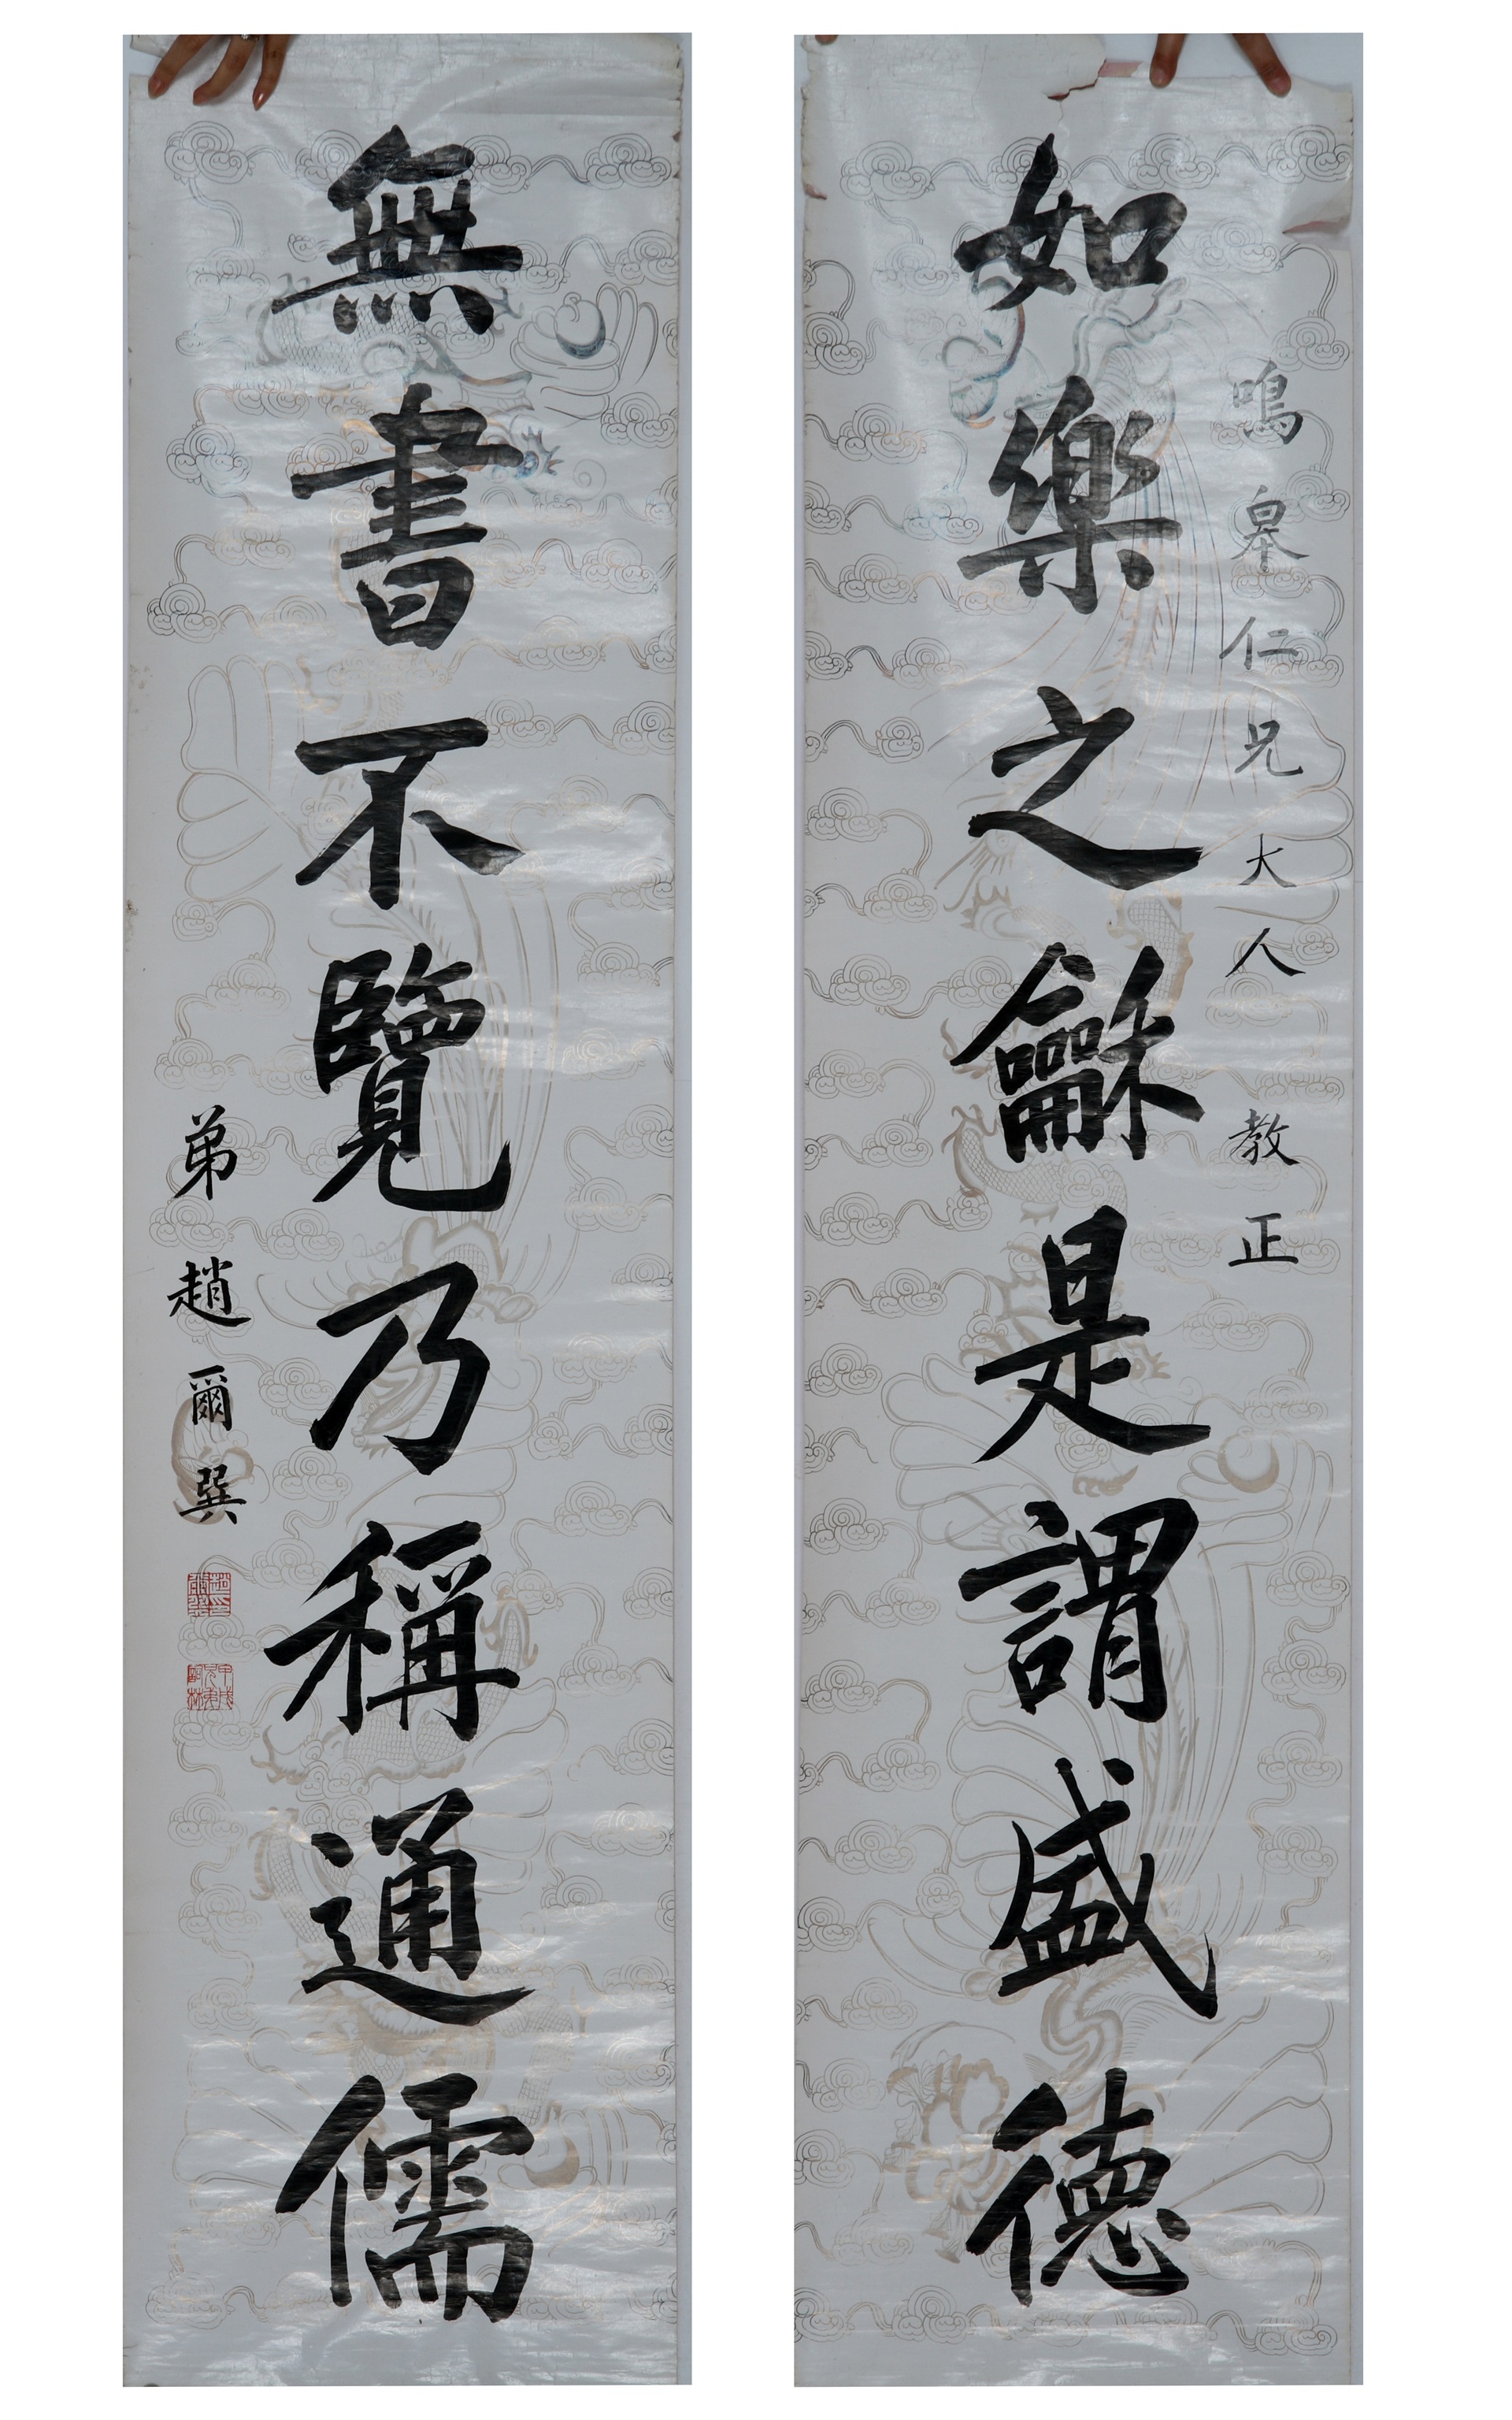 鳴皋仁兄大人教正
如樂之龢是謂盛德
無書不覽乃稱通儒
弟趙爾巽